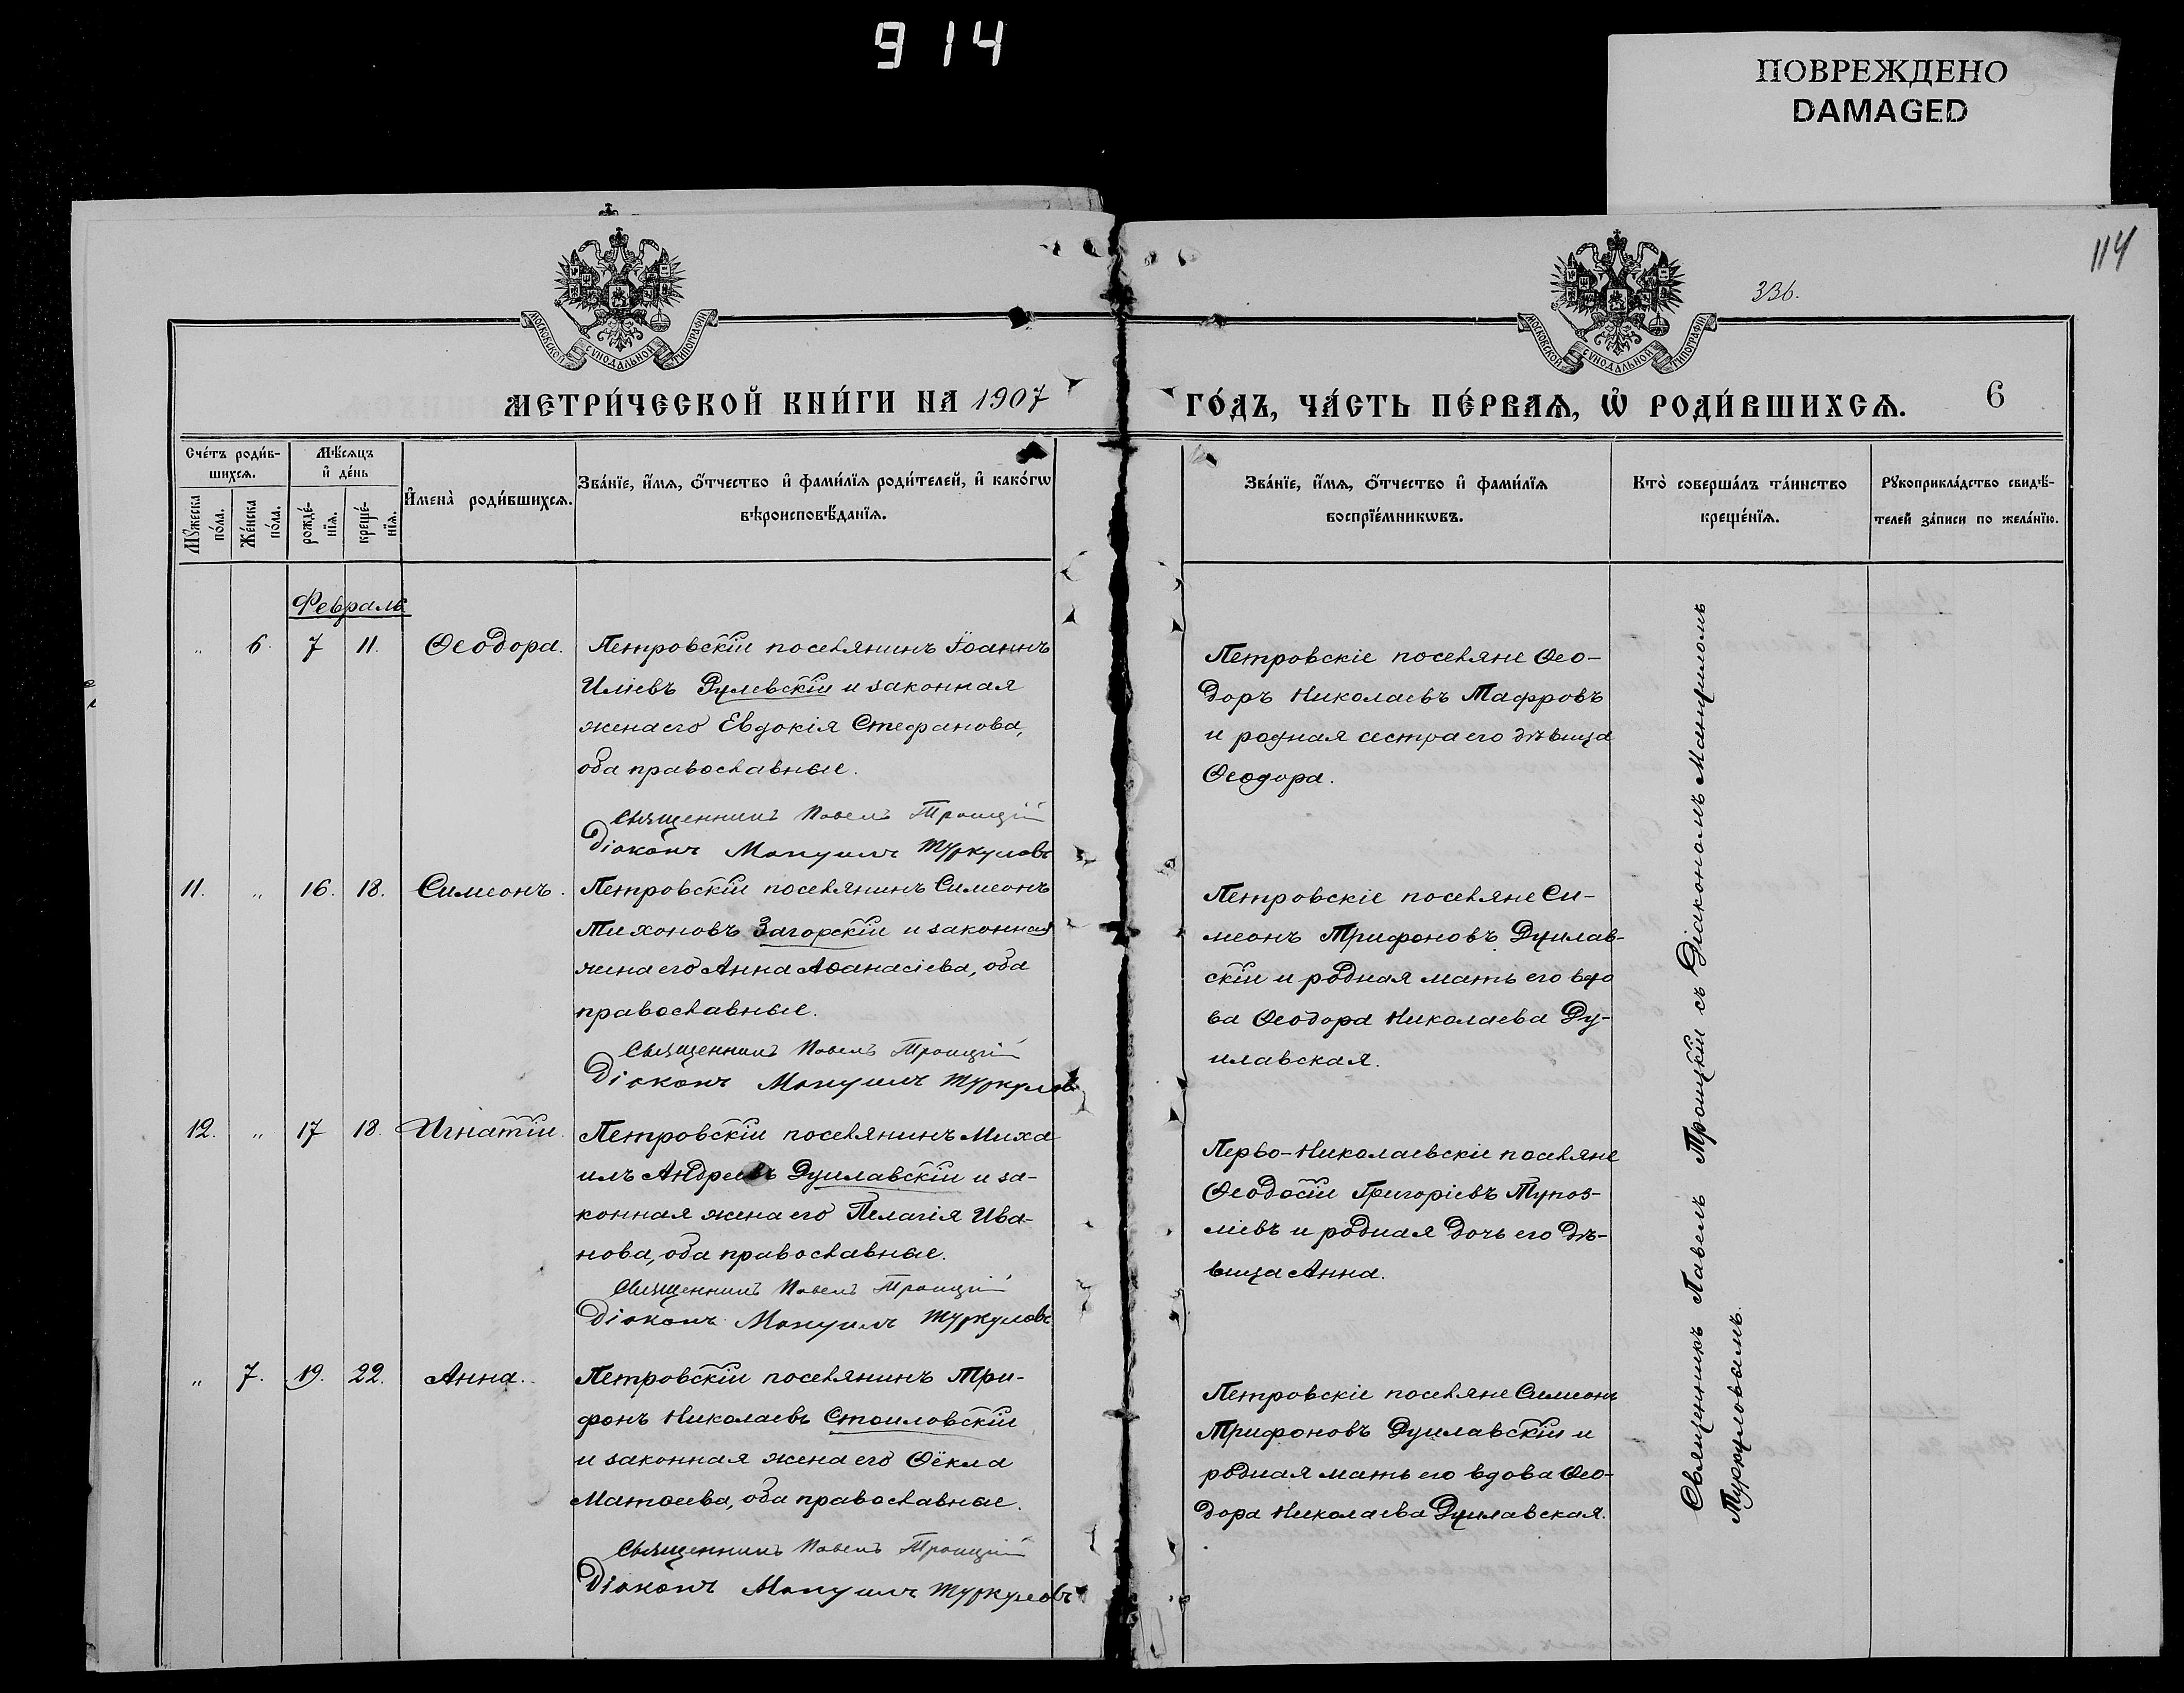 914
ПОВРЕЖДЕНО
DAMAGED
114
336.
МОСКОВСКОЙ СУНОДАЛЬНОЙ ТИПОГРАФІИ
МОСКОВСКОЙ СУНОДАЛЬНОЙ ТИПОГРАФІИ
МЕТРИ́ЧЕСКОЙ КНИ́ГИ НА 1907
ГО́ДЪ, ЧА́СТЬ ПЕ́РВАѦ, Ѡ҆ РОДИ́ВШИХСѦ.
6
Сче́тъ роди́в-
шихсѧ.
Мѣ́сѧцъ
и҆ де́нь
Мꙋ́жеска
по́ла.
Же́нска
по́ла.
рожде́-
нїѧ.
креще́-
нїѧ.
И҆мена̀ роди́вшихсѧ.
Зва́нїе, и҆́мѧ, ѻ҆́тчество и҆ фами́лїѧ роди́телей, и҆ како́гѡ
вѣроисповѣ́данїѧ.
Зва́нїе, и҆́мѧ, ѻ҆́тчество и҆ фами́лїѧ
воспрїе́мникѡвъ.
Кто̀ соверша́лъ та́инство
креще́нїѧ.
Рꙋкоприкла́дство свидѣ́-
телей за́писи по жела́нїю.
Февраль
" 6. 7 11. Ѳеодора.
Петровскій поселянинъ Іоаннъ
Иліевъ Рулевскій и законная
жена его Евдокія Стефанова,
оба православные.
Священникъ Павелъ Троицкій
Діаконъ Мануилъ Туркуловъ
Петровскіе поселяне Ѳео-
доръ Николаевъ Мафровъ
и родная сестра его дѣвица
Ѳеодора.
11. " 16. 18. Симеонъ.
Петровскій поселянинъ Симеонъ
Тихоновъ Загорскій и законная
жена его Анна Аѳанасіева, оба
православные.
Священникъ Павелъ Троицкій
Діаконъ Мануилъ Туркуловъ
Петровскіе поселяне Си-
меонъ Трифоновъ Дуилав-
скій и родная мать его вдо
ва Ѳеодора Николаева Ду-
илавская.
12. " 17 18. Игнатій.
Петровскій поселянинъ Миха
илъ Андреевъ Дуилавскій и за-
конная жена его Пелагія Ива-
нова, оба православные.
Священникъ Павелъ Троицкій
Діаконъ Мануилъ Туркуловъ
Перво-Николаевскіе поселяне
Ѳеодосій Григоріевъ Тупоз-
ліевъ и родная дочь его дѣ-
вица Анна.
" 7. 19. 22. Анна.
Петровскій поселянинъ Три-
фонъ Николаевъ Стоиловскій
и законная жена его Ѳекла
Матѳеева, оба православные.
Священникъ Павелъ Троицкій
Діаконъ Мануилъ Туркуловъ
Петровскіе поселяне Симеонъ
Трифоновъ Дуилавскій и
родная мать его вдова Ѳео-
дора Николаева Дуилавская.
Священникъ Павелъ Троицкій съ Діакономъ Мануиломъ
Туркуловымъ.